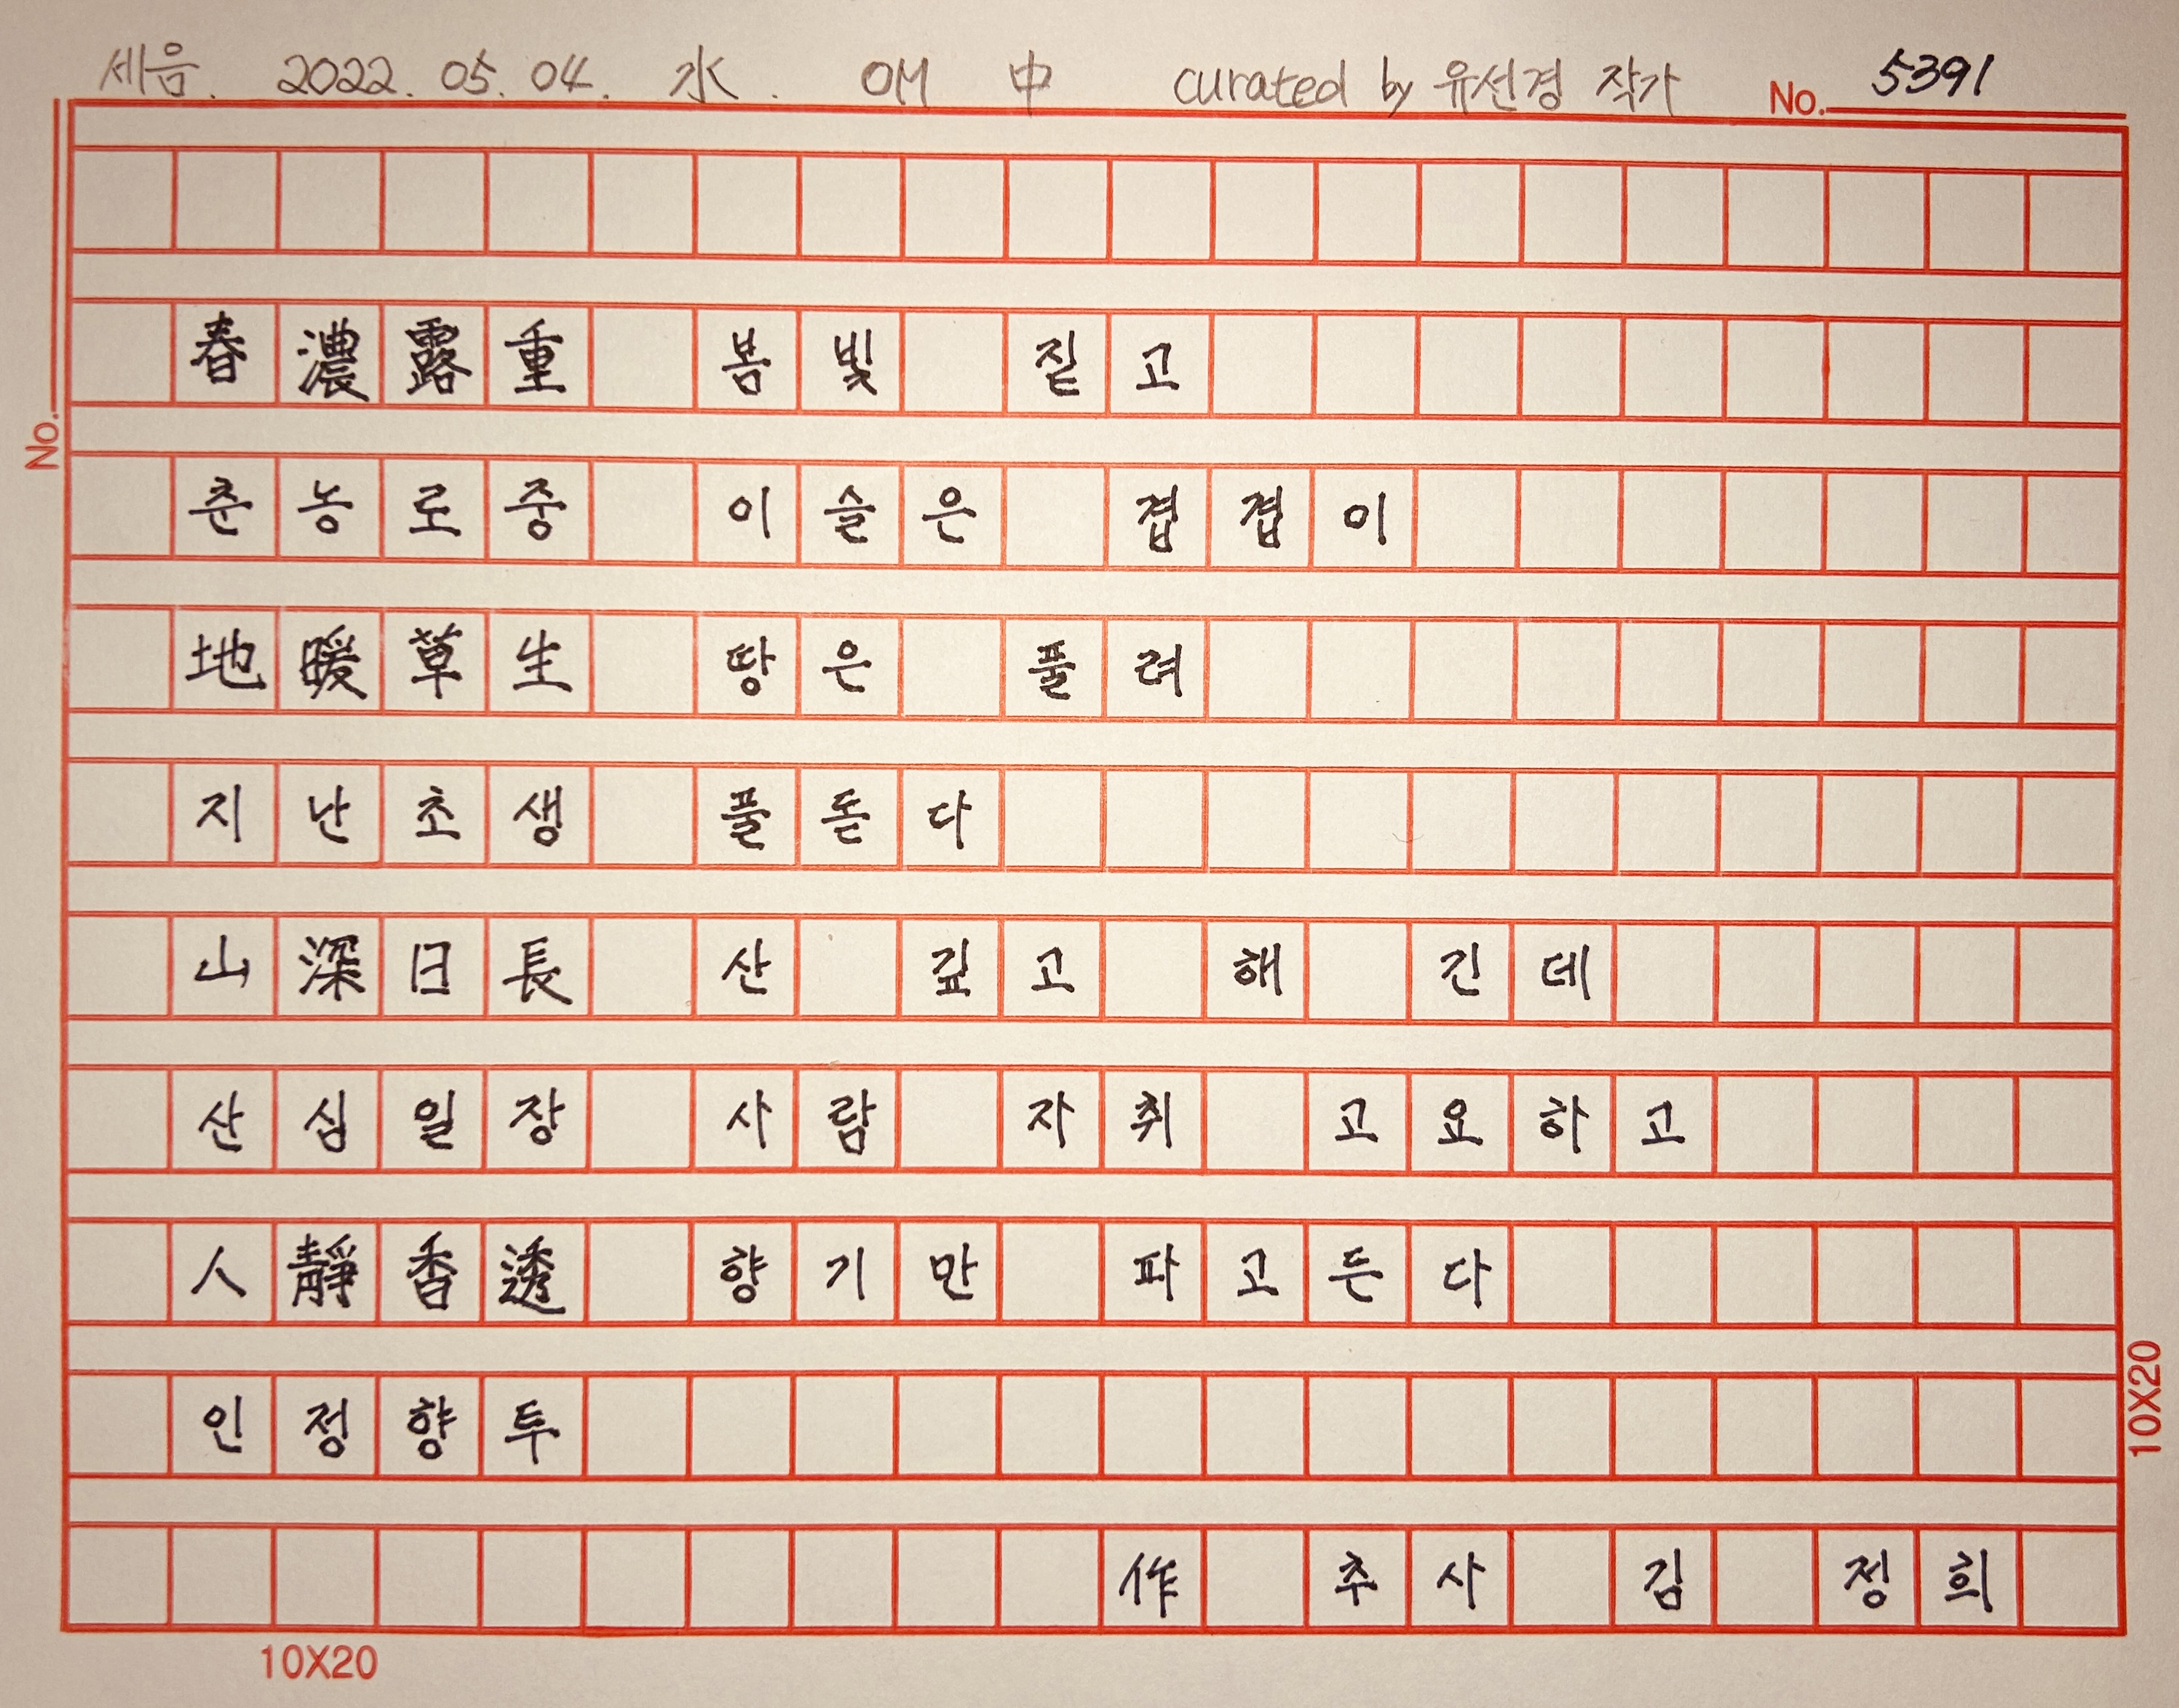 세음. 2022. 05. 04. 水. OM 中 curated by 유선경 작가 No. 5391
No.
春濃露重 봄빛 짙고
춘농로중 이슬은 겹겹이
地暖草生 땅은 풀려
지난초생 풀돋다
山深日長 산 깊고 해 긴데
산심일장 사람 자취 고요하고
人靜香透 향기만 파고든다
인정향투
作 추사 김 정희
10X20
10X20